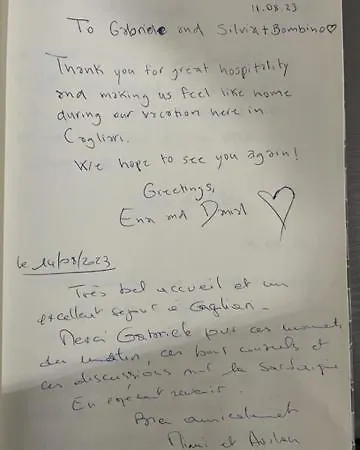 11.08.23
To Gabriele and Silvia + Bambino♡
Thank you for great hospitality
and making us feel like home
during our vacation here in
Cagliari.
We hope to see you again!
Greetings,
Ena and Daniel
le 14/08/2023
Très bel accueil et un
excellent séjour à Cagliari.
Merci Gabriele pour ces moments
du matin, ces bons conseils et
ces discussions sur la Sardaigne
En espérant revenir.
Bien amicalement
et